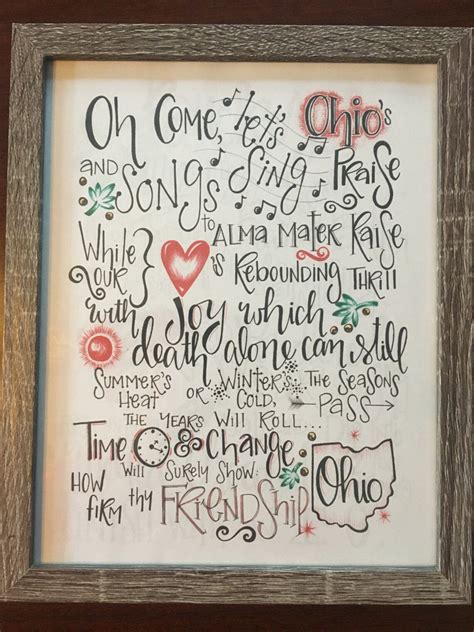 Oh Come, let's
Sing Ohio's Praise
and Songs
to Alma Mater Raise
While our
's Rebounding Thrill
with Joy which
death alone can still
Summer's Heat
or Winter's Cold,
The Seasons Pass
The Years Will Roll...
Time & Change
Will Surely Show:
How Firm thy
Friendship
Ohio